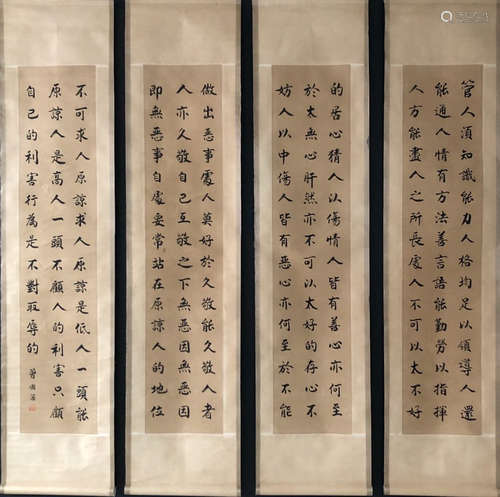 管人須知識能力人格均足以領導人還
能通人情有方法善言語能勤勞以指揮
人方能盡人之所長處人不可以太不好
的居心猜人以傷情人皆有善心亦何至
於太無心肝然亦不可以太好的存心不
妨人以中傷人皆有惡心亦何至於不能
做出惡事處人莫好於久敬能久敬人者
人亦久敬自己互敬之下無惡因無惡因
即無惡事自處要常站在原諒人的地位
不可求人原諒求人原諒是低人一頭能
原諒人是高人一頭不顧人的利害只顧
自己的利害行為是不對取辱的
曾國藩